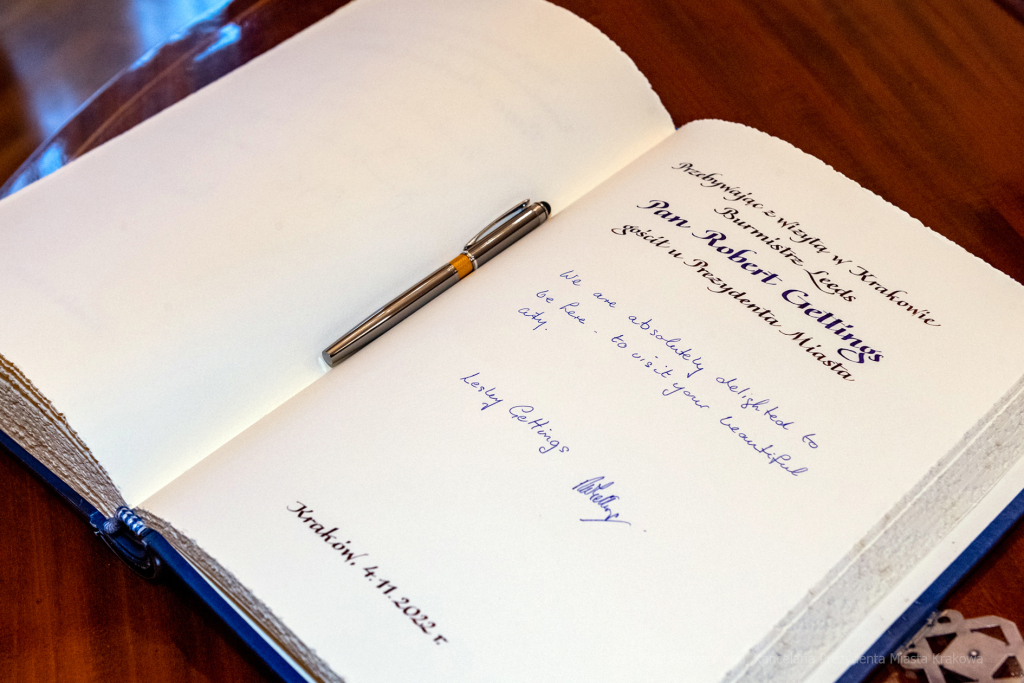 Przebywając z wizytą w Krakowie
Burmistrz Leeds
Pan Robert Gellings
gościł u Prezydenta Miasta
We are absolutely delighted to
be here - to visit your beautiful
city.
Lesley Gettings
Kraków, 4.11.2022 r.
Prezydenta Miasta Krakowa